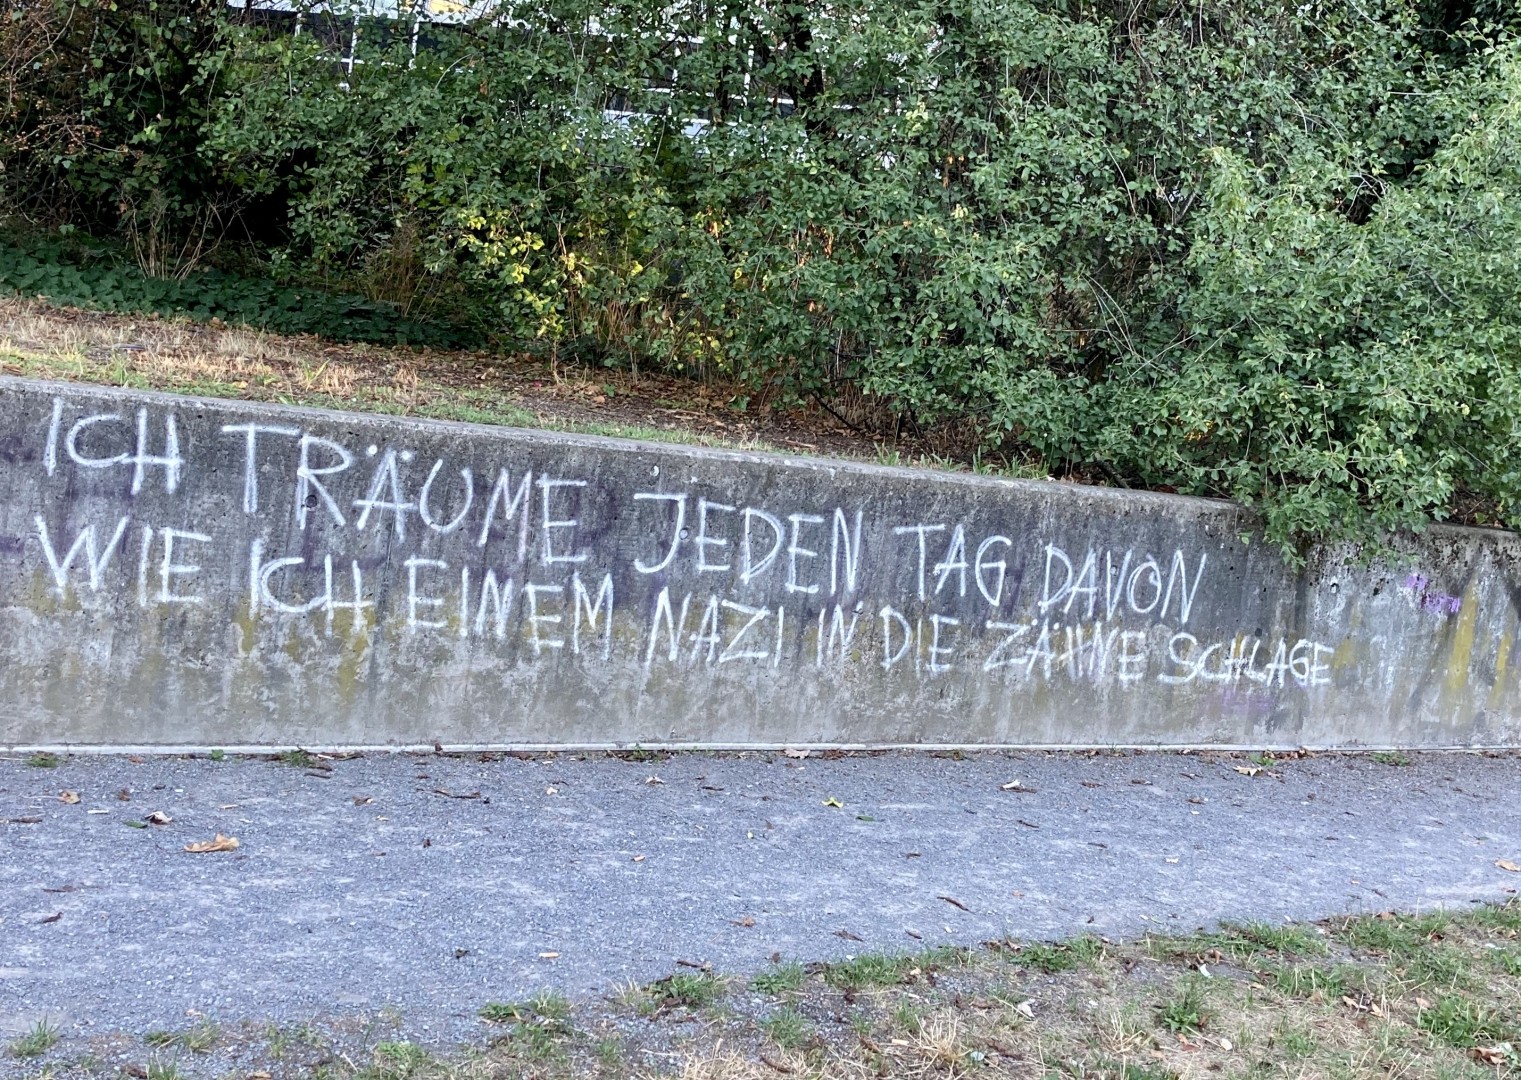 ICH TRÄUME JEDEN TAG DAVON
WIE ICH EINEM NAZI IN DIE ZÄHNE SCHLAGE